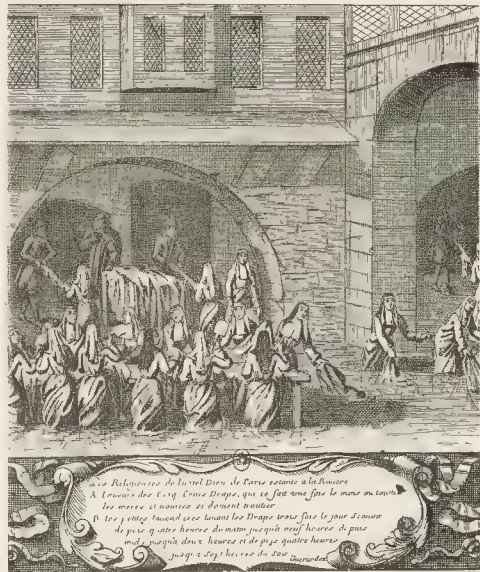 Les Religieuses de lostel Dieu de Paris estante a la Riviere
A Louvrir des Cinq Cents Draps, qui ce fait une fois le mois ou toutte
les meres et novices si doivent trouver
B les petites lavenderes lavant les Draps trois fois le jour Scavoir
de puis quattre heures du matin jusqua neuf heures de puis
midy jusqua deux heures et de pies quattre heures
jusqua Sept heures du Soir